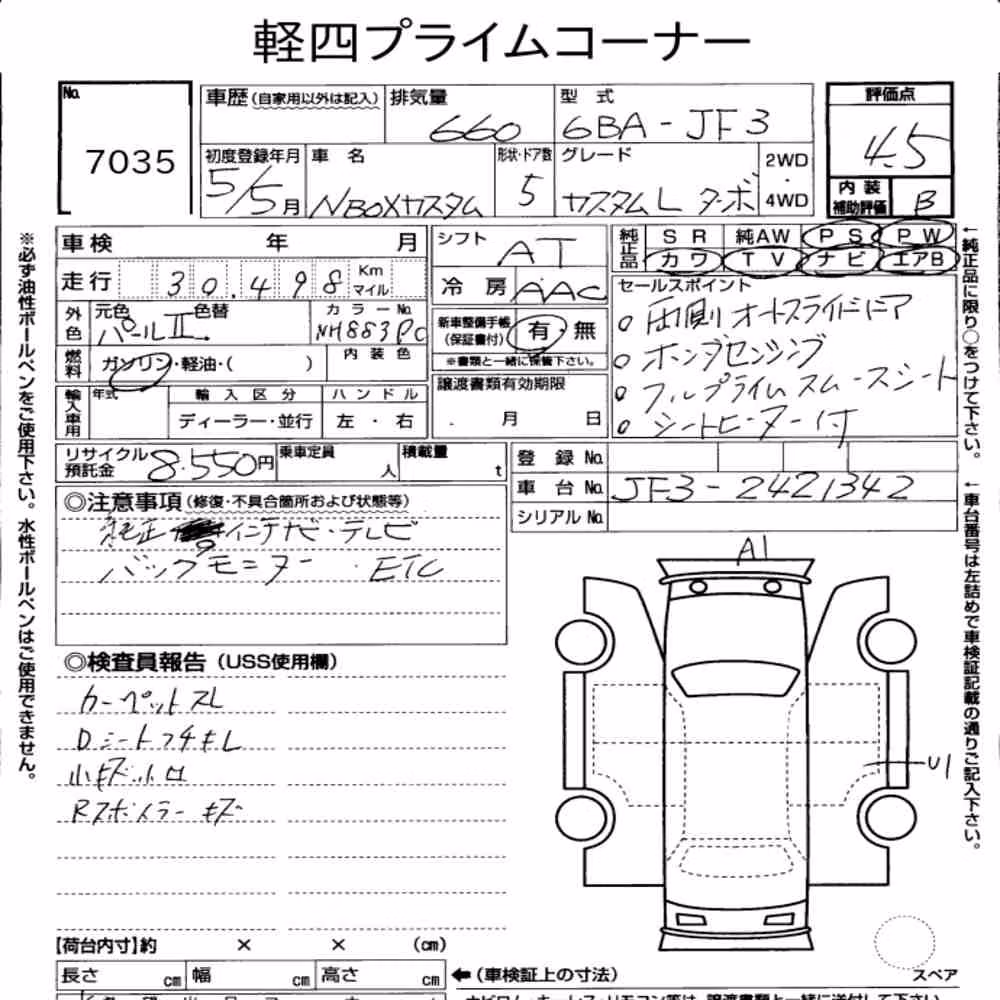 軽四プライムコーナー
No. 7035
車歴(自家用以外は記入)
排気量 660
型式 6BA-JF3
評価点 4.5
初度登録年月 5/5月
車名 NBOXカスタム
形状・ドア数 5
グレード カスタムL ターボ
2WD・4WD
内装補助評価 B
車検 年 月
走行 30.498 Km マイル
外色 元色 パールII 色替
カラーNo. NH883PC
燃料 ガソリン・軽油・( )
内装色
輸入車用 年式 輸入区分 ディーラー・並行 ハンドル 左・右
シフト AT
冷房 AAC
新車整備手帳(保証書付) 有・無
※書類と一緒に保管下さい。
譲渡書類有効期限 月 日
純正品 SR 純AW PS PW
カワ TV ナビ エアB
セールスポイント
両側オートスライドドア
ホンダセンシング
フルプライムスムースシート
シートヒーター付
リサイクル預託金 8.550円
乗車定員 人
積載量 t
登録No.
車台No. JF3-2421342
シリアルNo.
◎注意事項(修復・不具合箇所および状態等)
純正 インナビ・テレビ
バックモニター・ETC
◎検査員報告(USS使用欄)
カーペットスレ
Dシートフチキレ
小キズ小凹
Rスポイラーキズ
A1
U1
スペア
【荷台内寸】約 × × (cm)
長さ cm 幅 cm 高さ cm
←(車検証上の寸法)
※必ず油性ボールペンをご使用下さい。水性ボールペンはご使用できません。
←純正品に限り○をつけて下さい。
←車台番号は左詰めで車検証記載の通りご記入下さい。